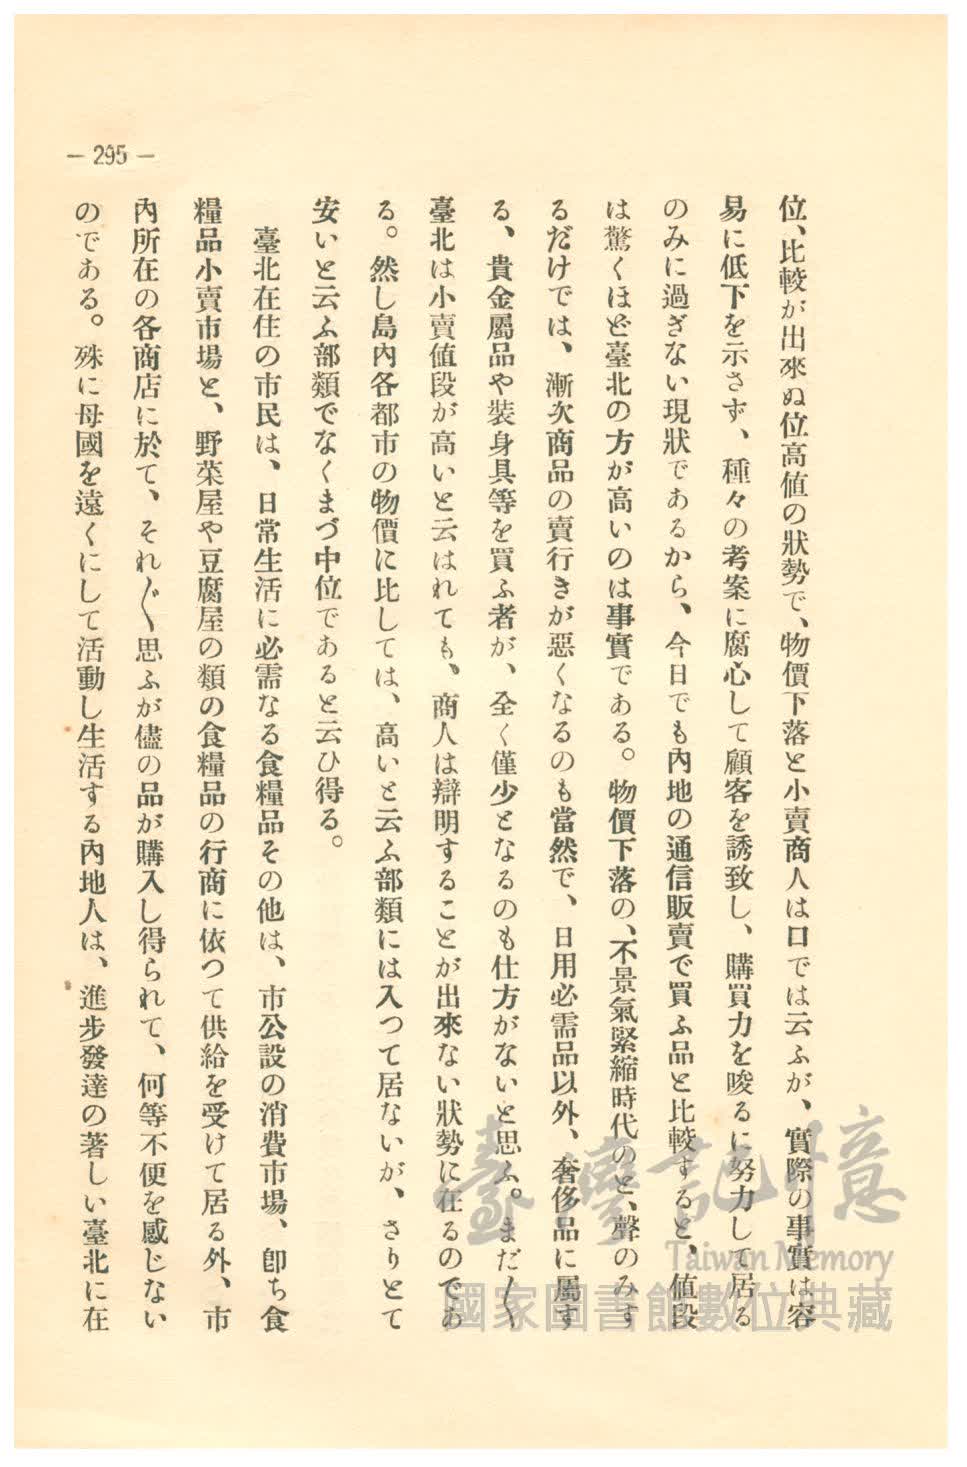 位、比較が出來ぬ位高値の狀勢で、物價下落と小賣商人は口では云ふが、實際の事實は容
易に低下を示さず、種々の考案に腐心して顧客を誘致し、購買力を唆るに努力して居る
のみに過ぎない現狀であるから、今日でも內地の通信販賣で買ふ品と比較すると、値段
は驚くほど臺北の方が高いのは事實である。物價下落の、不景氣緊縮時代のと、聲のみす
るだけでは、漸次商品の賣行きが惡くなるのも當然で、日用必需品以外、奢侈品に屬す
る、貴金屬品や裝身具等を買ふ者が、全く僅少となるのも仕方がないと思ふ。まだ〱
臺北は小賣値段が高いと云はれても、商人は辯明することが出來ない狀勢に在るのであ
る。然し島內各都市の物價に比しては、高いと云ふ部類には入つて居ないが、さりとて
安いと云ふ部類でなくまづ中位であると云ひ得る。
臺北在住の市民は、日常生活に必需なる食糧品その他は、市公設の消費市場、卽ち食
糧品小賣市場と、野菜屋や豆腐屋の類の食糧品の行商に依つて供給を受けて居る外、市
內所在の各商店に於て、それ〲思ふが儘の品が購入し得られて、何等不便を感じない
のである。殊に母國を遠くにして活動し生活する內地人は、進步發達の著しい臺北に在
— 295 —
臺灣記憶
Taiwan Memory
國家圖書館數位典藏